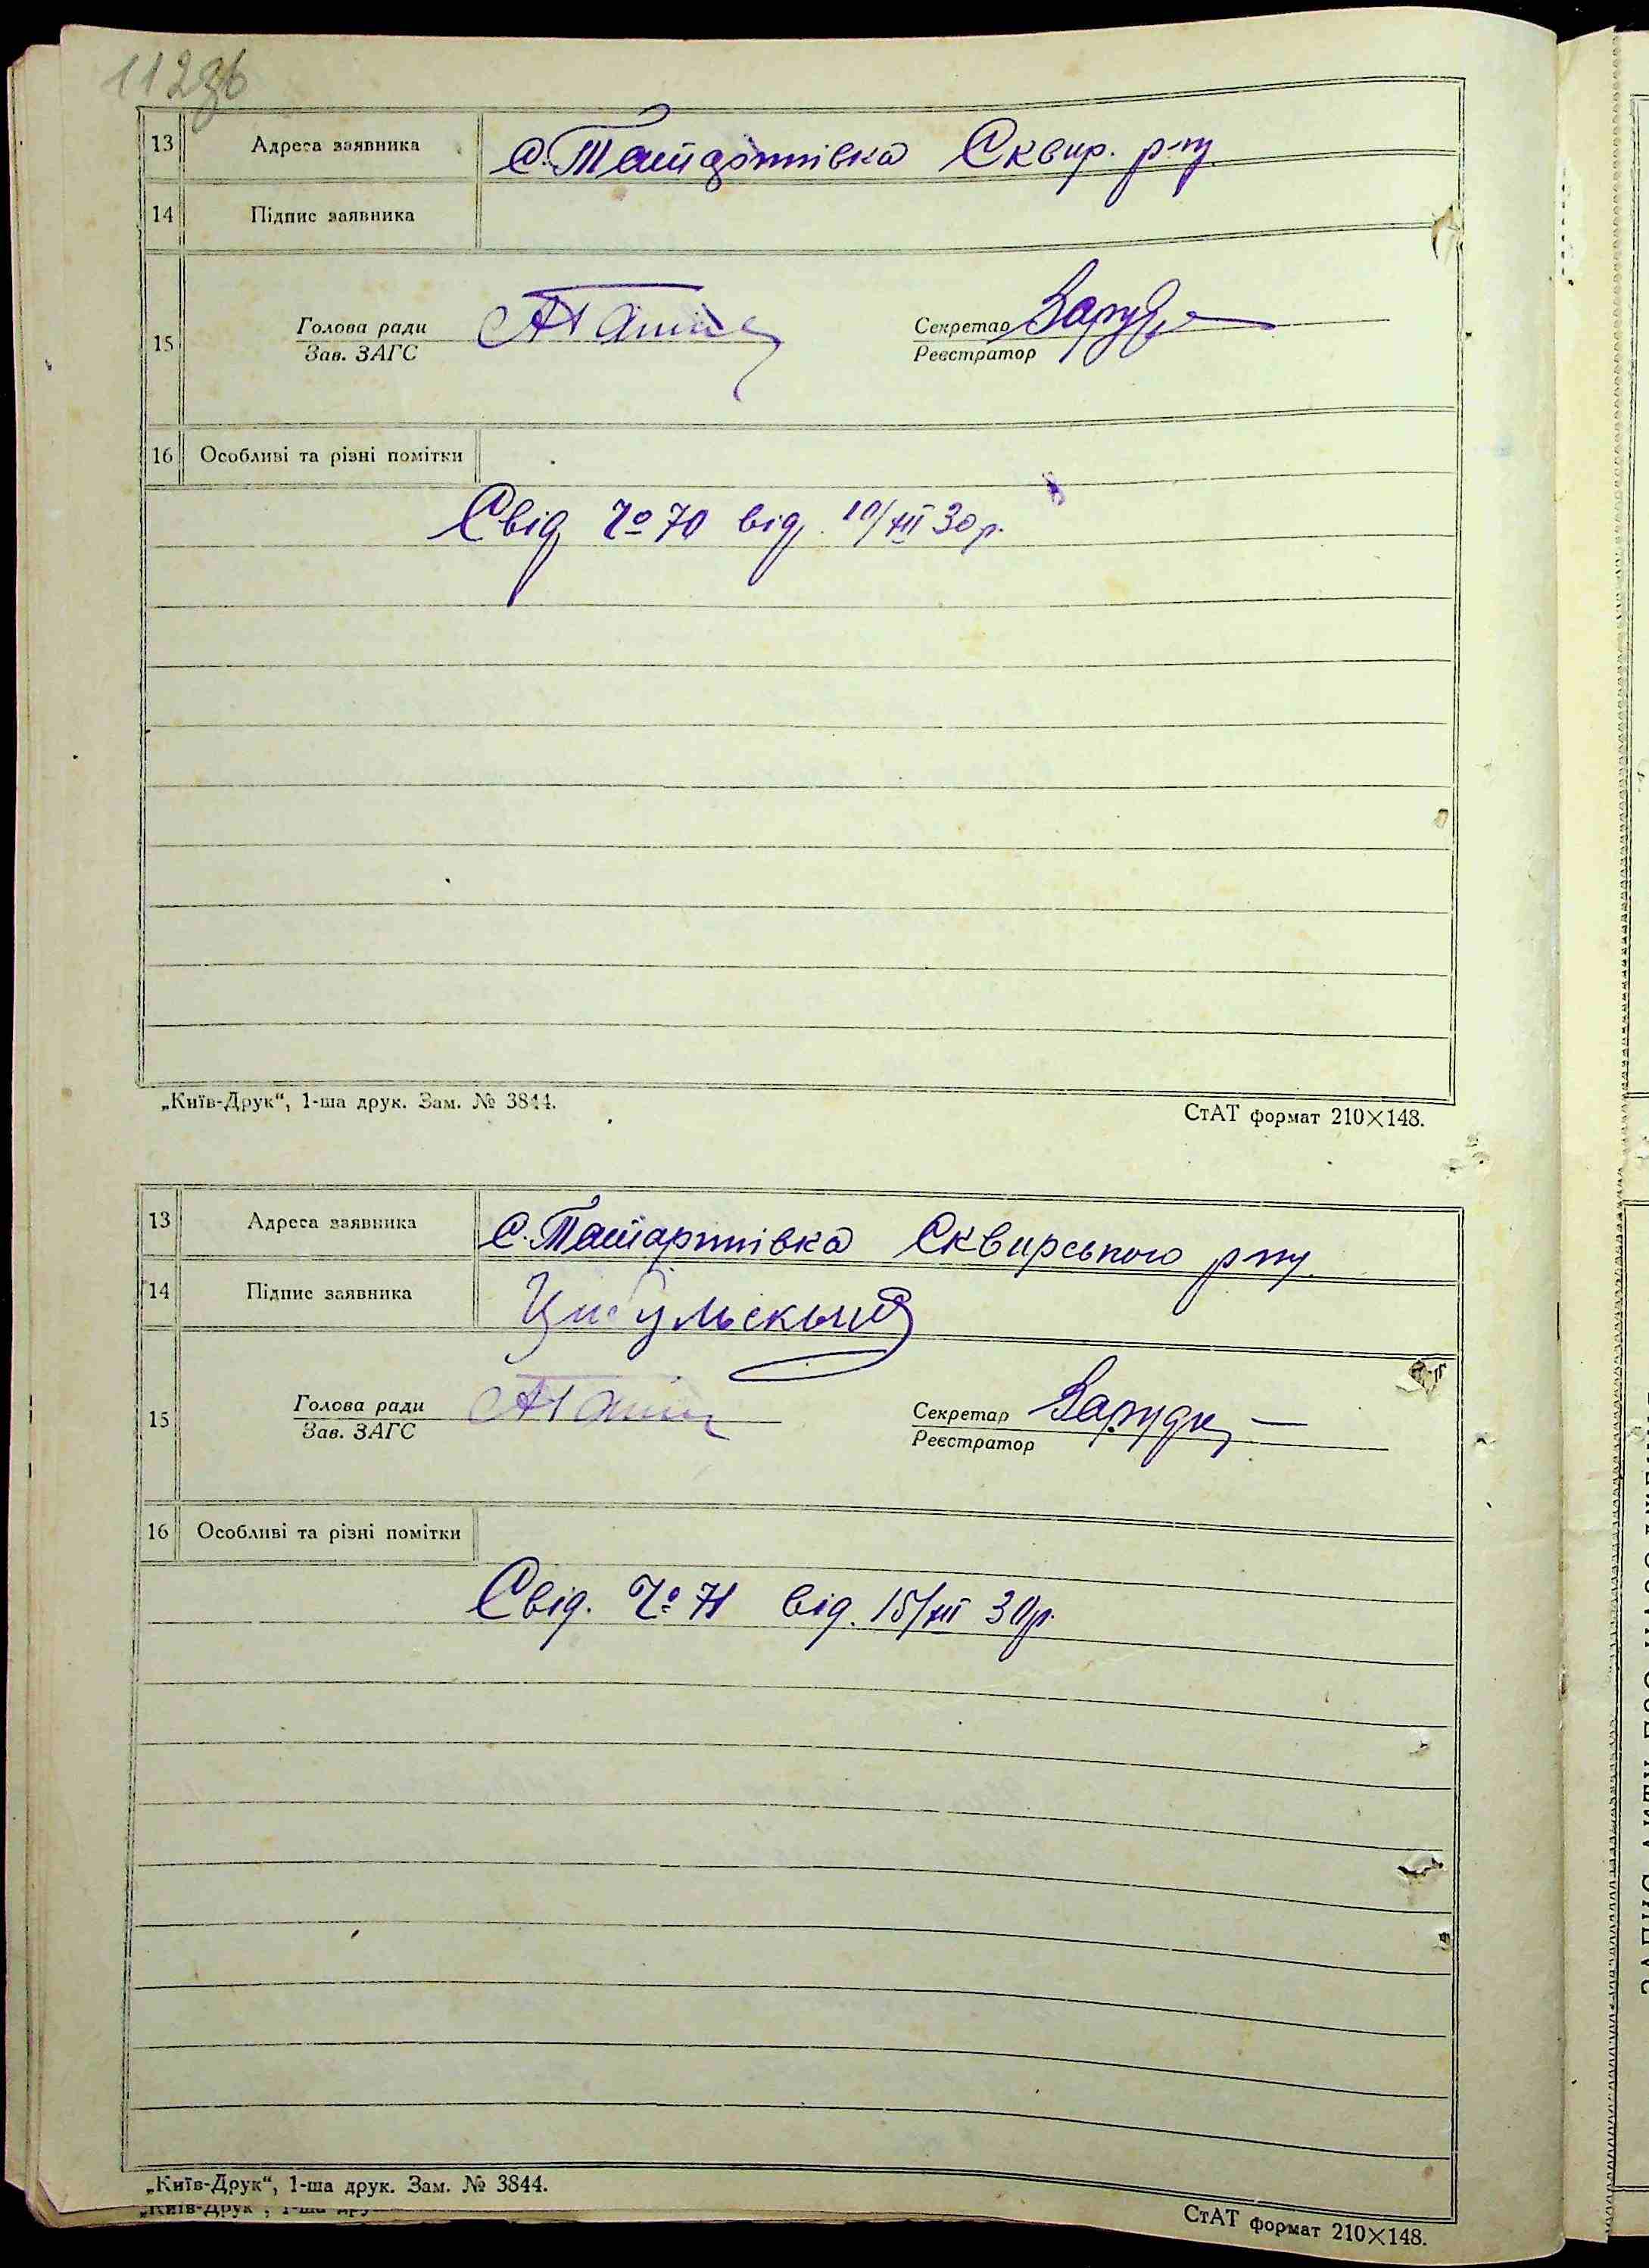 112зв
13 Адреса заявника с. Татаритівка Сквир. р-ну
14 Підпис заявника
15 Голова ради Секретар
Зав. ЗАГС Реєстратор
16 Особливі та різні помітки
Свід № 70 від 10/XII 30 р.
„Київ-Друк“, 1-ша друк. Зам. № 3844.
СтАТ формат 210×148.
13 Адреса заявника с. Татаринівка Сквирського р-ну
14 Підпис заявника Цибульскый
15 Голова ради Секретар
Зав. ЗАГС Реєстратор
16 Особливі та різні помітки
Свід. № 71 від. 15/XII 30 р.
„Київ-Друк“, 1-ша друк. Зам. № 3844.
„Київ-Друк“, 1-ша дру
СтАТ формат 210×148.